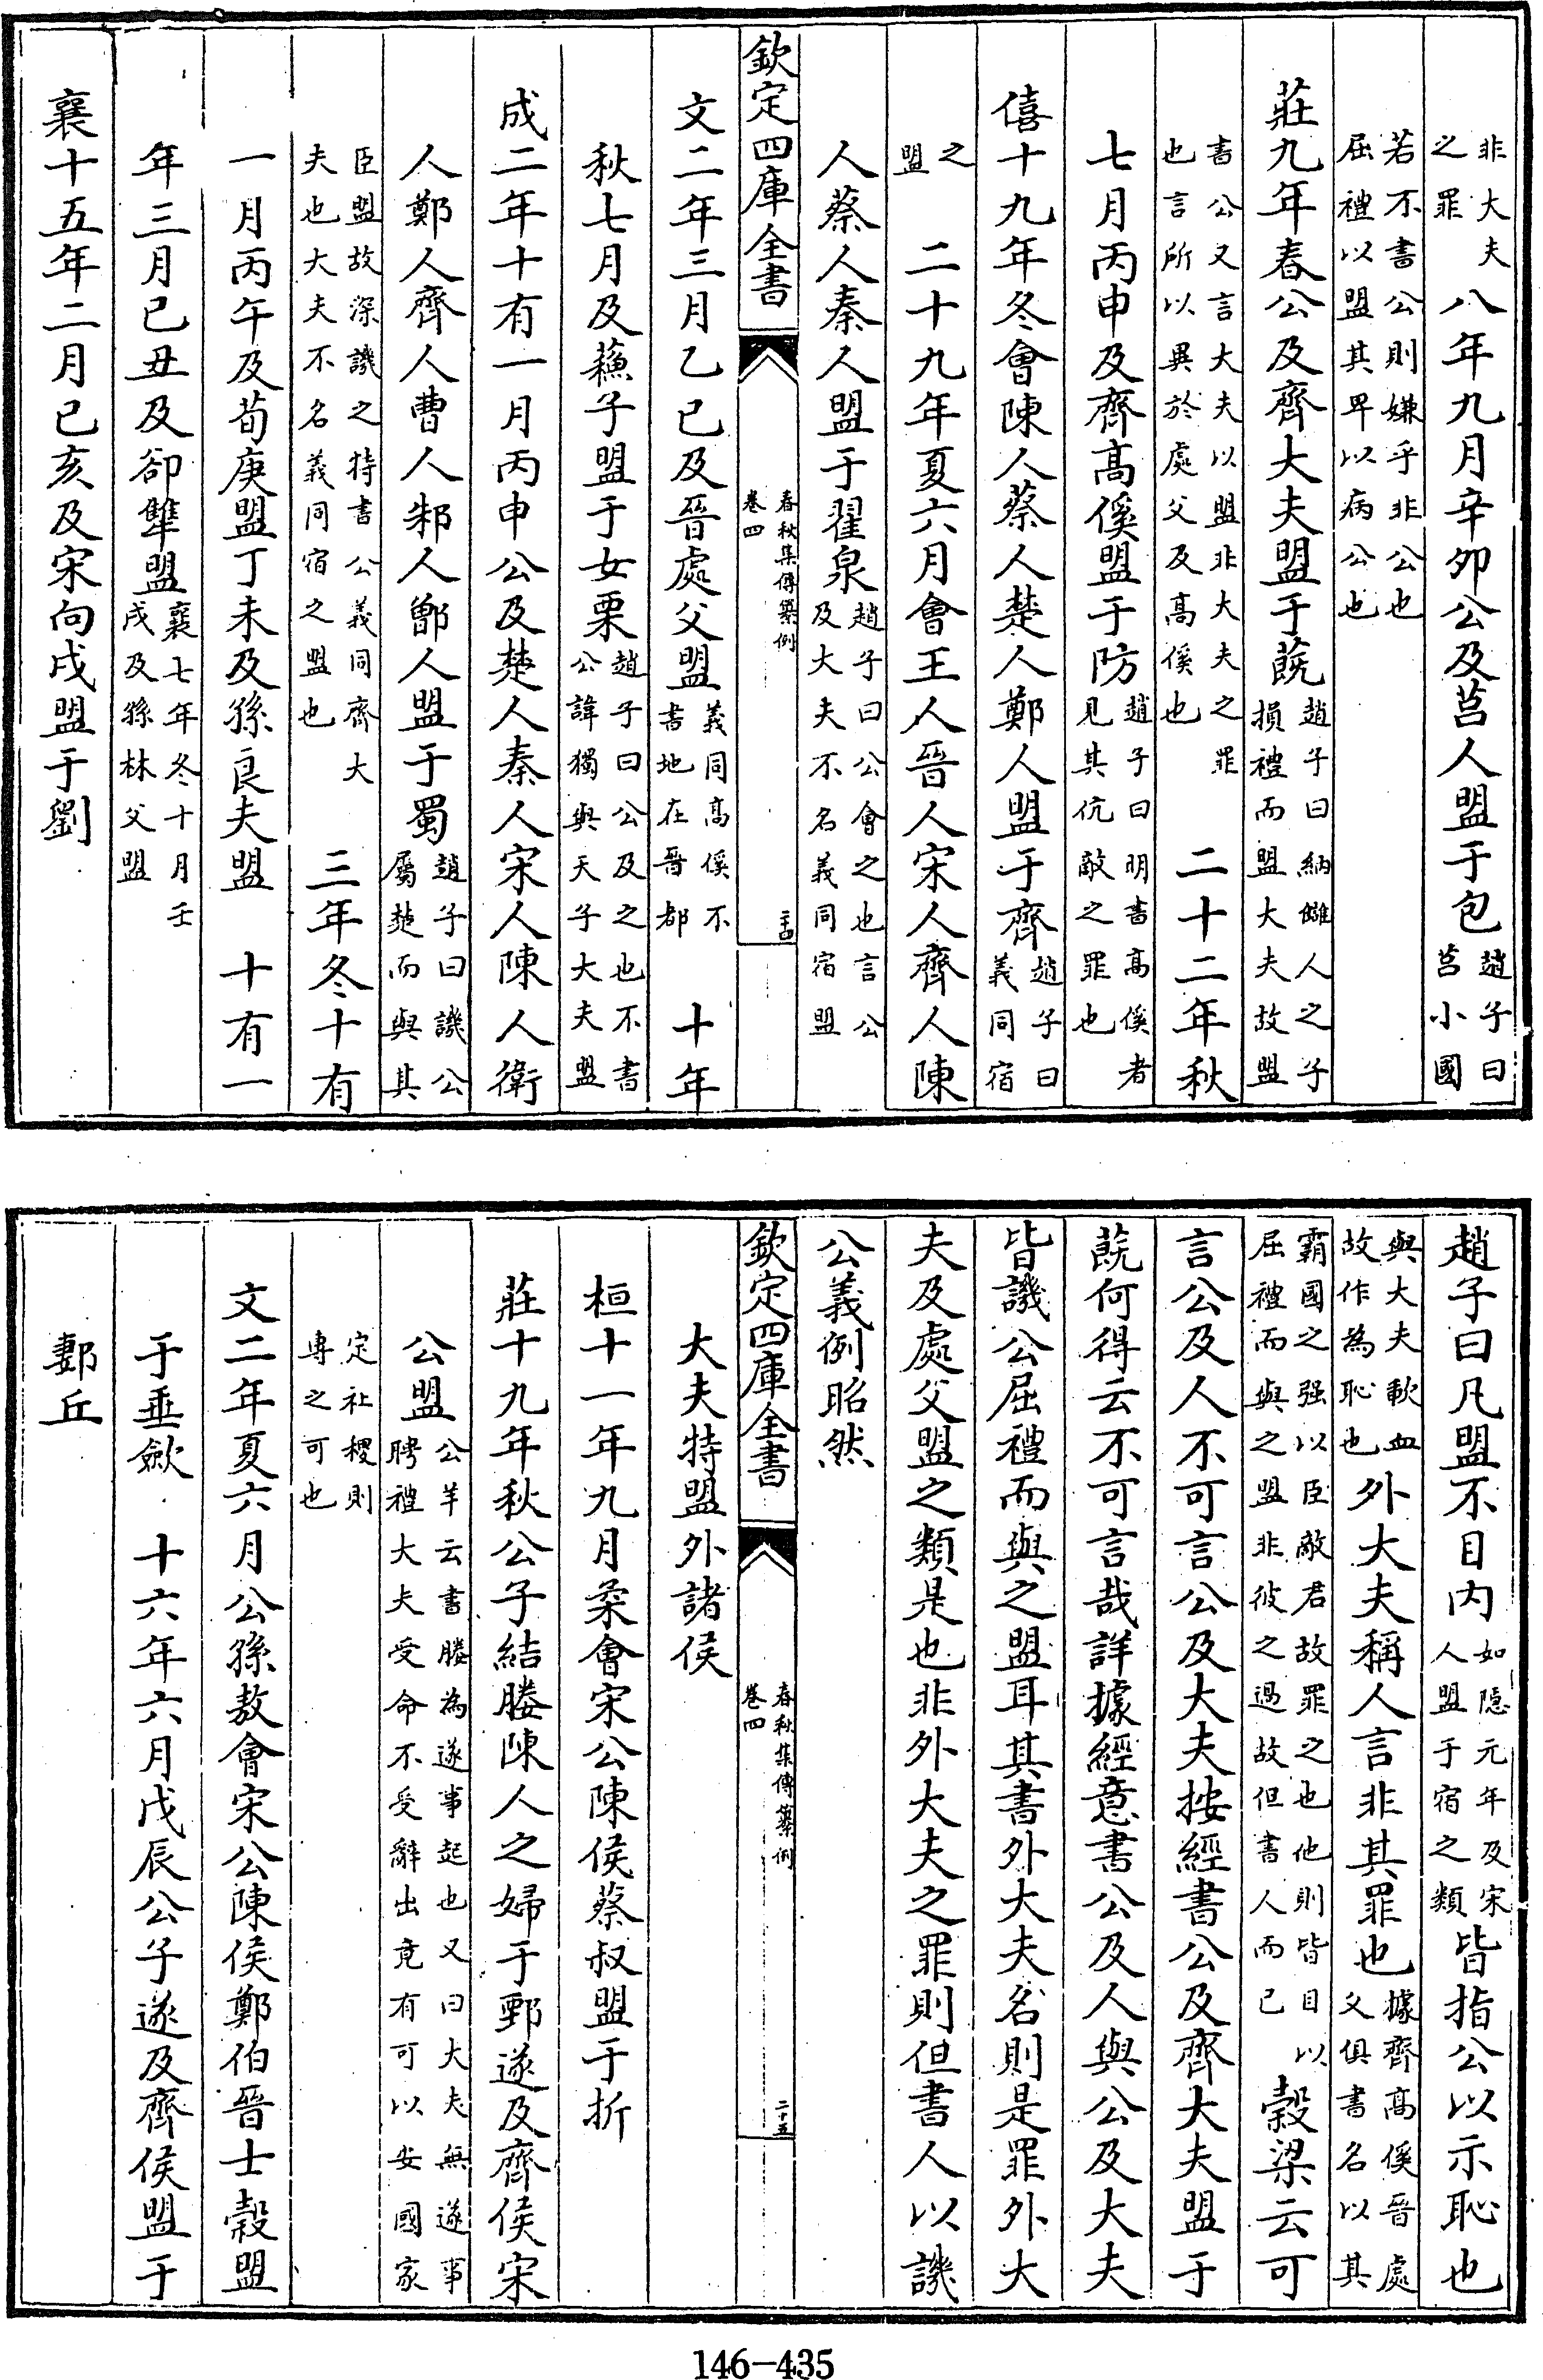 非大夫之罪八年九月辛卯公及莒人盟于包趙子曰莒小國
若不書公則嫌乎非公也屈禮以盟其卑以病公也
莊九年春公及齊大夫盟于蔇趙子曰納讎人之子損禮而盟大夫故盟
書公又言大夫以盟非大夫之罪也言所以異於處父及高傒也二十二年秋
七月丙申及齊高傒盟于防趙子曰明書高傒者見其伉敵之罪也
僖十九年冬會陳人蔡人楚人鄭人盟于齊趙子曰義同宿
之盟二十九年夏六月會王人晉人宋人齊人陳
人蔡人秦人盟于翟泉趙子曰公會之也言公及大夫不名義同宿盟
欽定四庫全書 春秋集傳纂例卷四 二十四
文二年三月乙巳及晉處父盟義同高傒不書地在晉都十年
秋七月及蘓子盟于女栗趙子曰公及之也不書公諱獨與天子大夫盟
成二年十有一月丙申公及楚人秦人宋人陳人衛
人鄭人齊人曹人邾人鄫人盟于蜀趙子曰譏公屬楚而與其
臣盟故深譏之特書公義同齊大夫也大夫不名義同宿之盟也三年冬十有
一月丙午及荀庚盟丁未及孫良夫盟十有一
年三月己丑及郤犨盟襄七年冬十月壬戌及孫林父盟
襄十五年二月己亥及宋向戌盟于劉
趙子曰凡盟不目內如隱元年及宋人盟于宿之類皆指公以示恥也
與大夫歃血故作為恥也外大夫稱人言非其罪也據齊高傒晉處父俱書名以其
霸國之强以臣敵君故罪之也他則皆目以屈禮而與之盟非彼之過故但書人而已穀梁云可
言公及人不可言公及大夫按經書公及齊大夫盟于
蔇何得云不可言哉詳據經意書公及人與公及大夫
皆譏公屈禮而與之盟耳其書外大夫名則是罪外大
夫及處父盟之類是也非外大夫之罪則但書人以譏
公義例昭然
欽定四庫全書 春秋集傳纂例卷四 二十五
大夫特盟外諸侯
桓十一年九月柔會宋公陳侯蔡叔盟于折
莊十九年秋公子結媵陳人之婦于鄄遂及齊侯宋
公盟公羊云書媵為遂事起也又曰大夫無遂事聘禮大夫受命不受辭出竟有可以安國家
定社稷則專之可也
文二年夏六月公孫敖會宋公陳侯鄭伯晉士縠盟
于垂歛十六年六月戊辰公子遂及齊侯盟于
郪丘
146-435